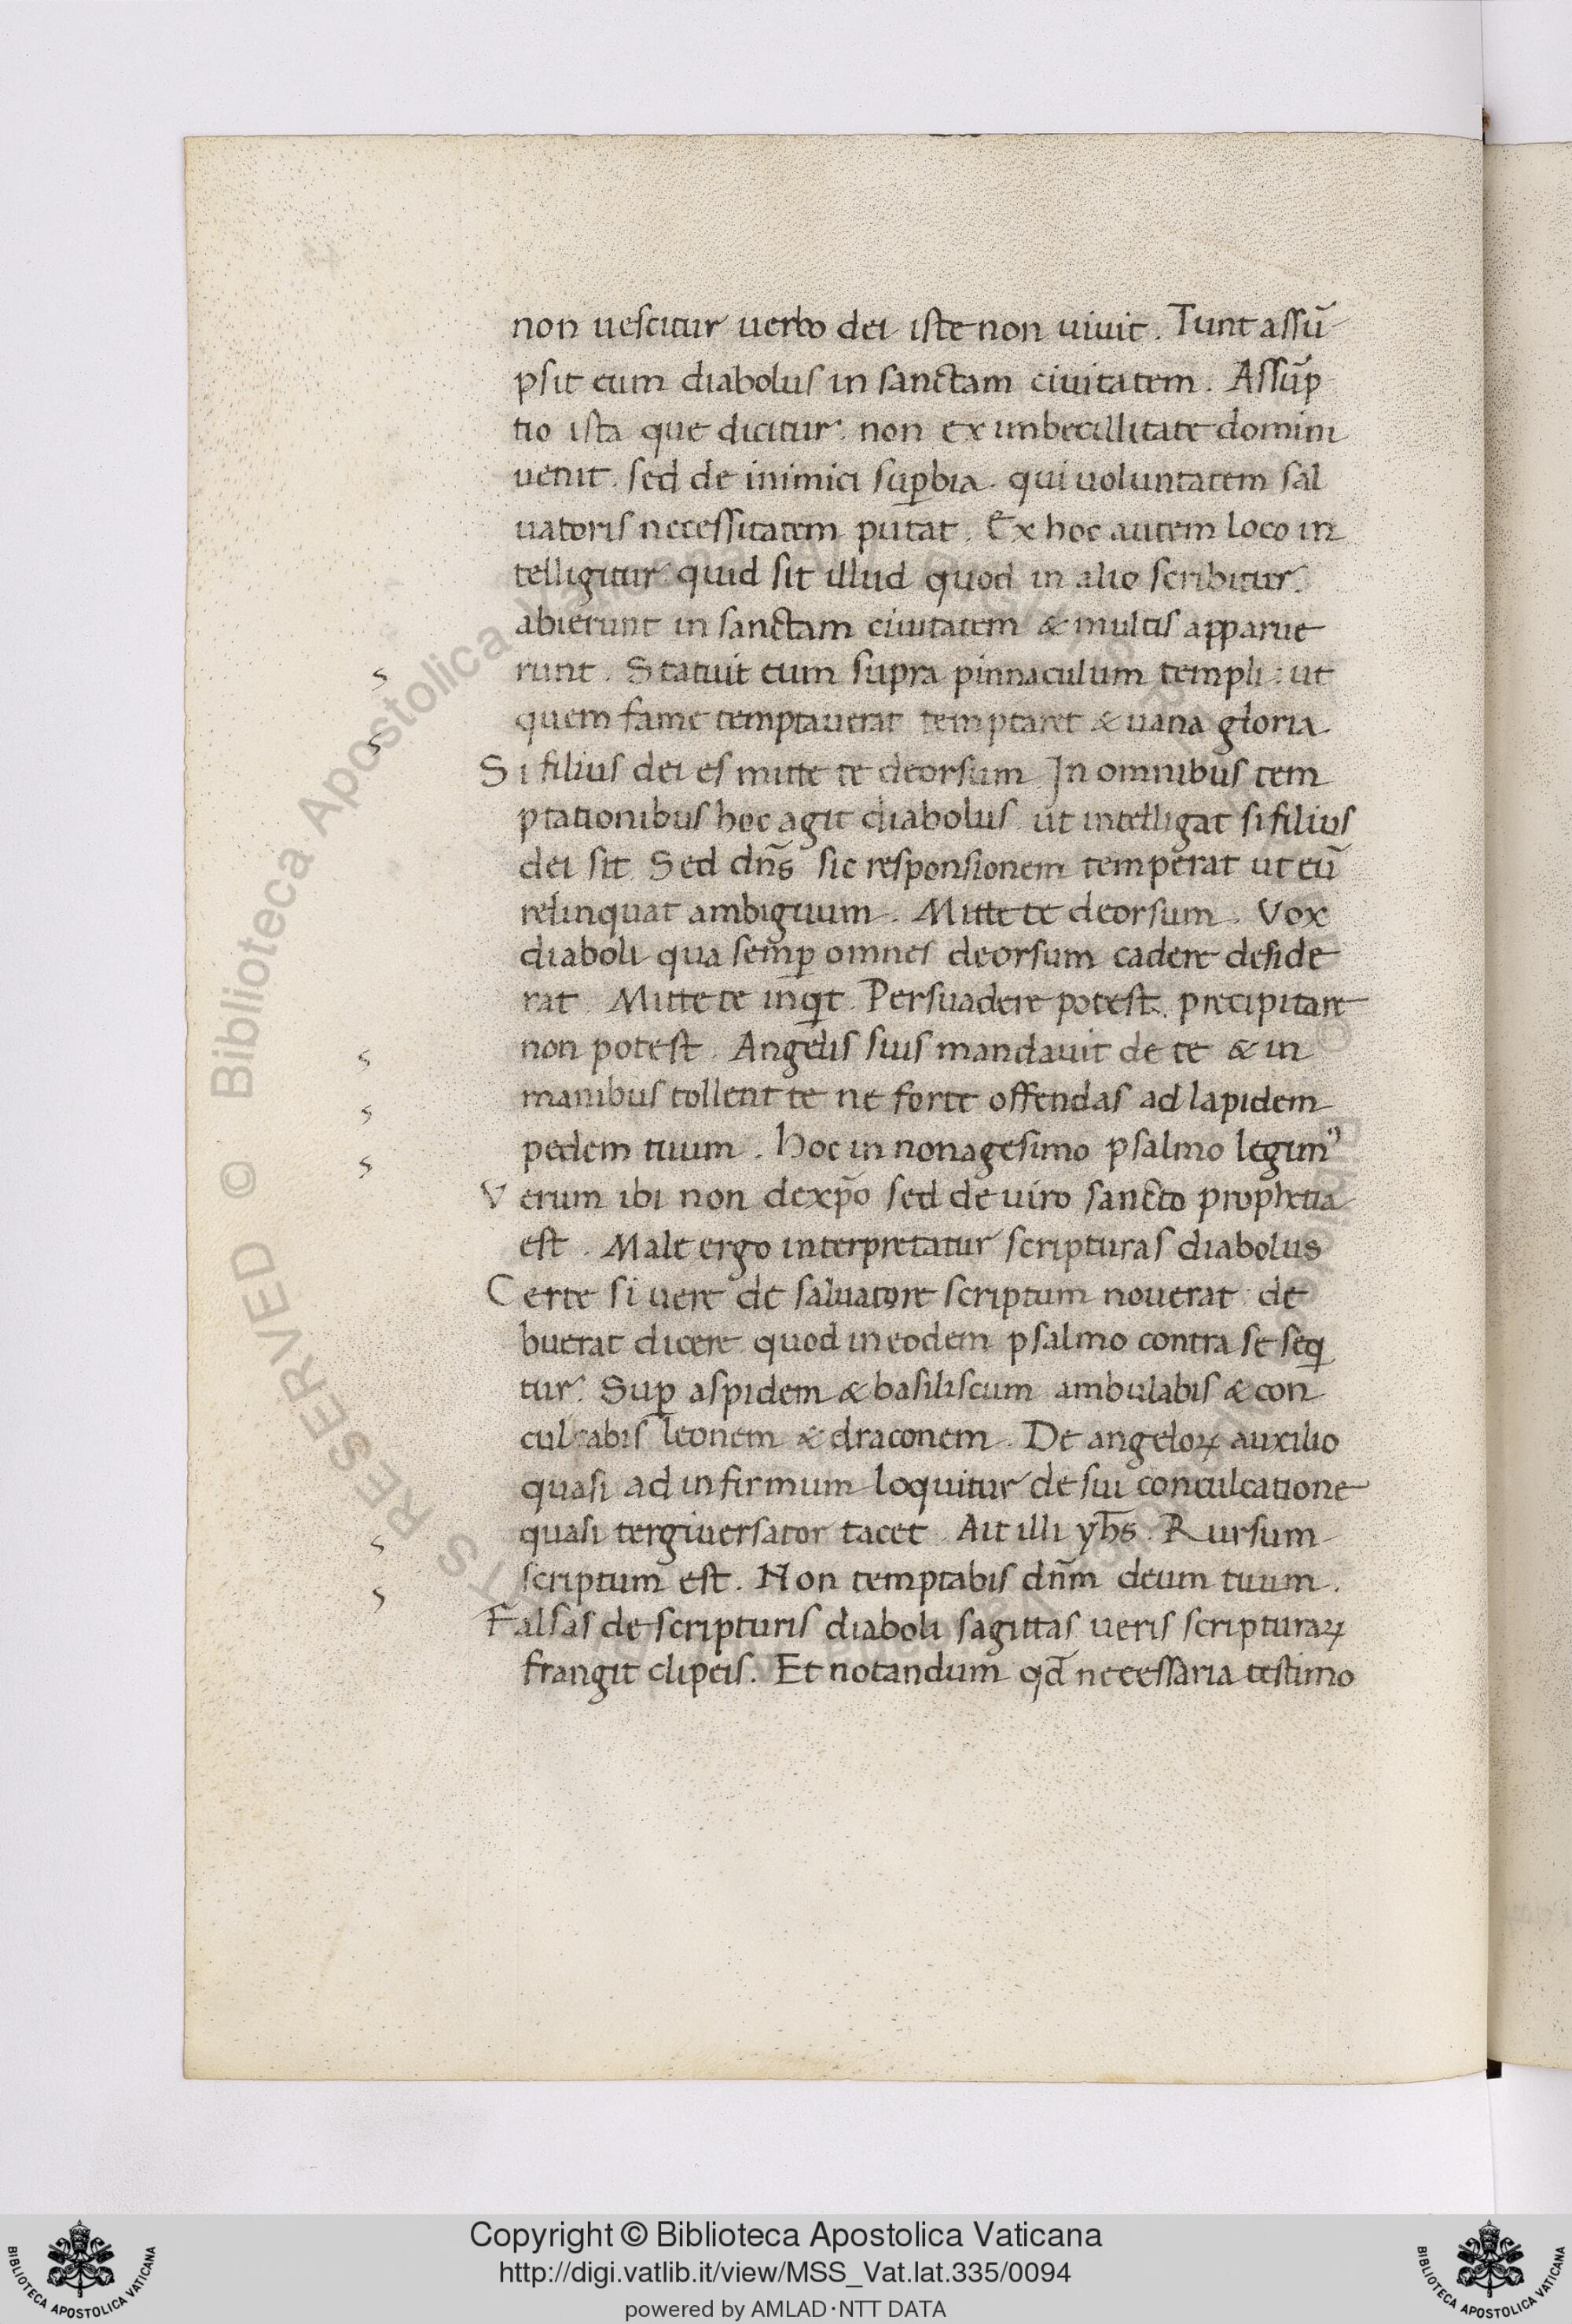 non uescitur uerbo dei iste non uiuit. Tunt assū
psit eum diabolus in sanctam ciuitatem. Assūp
tio ista que dicitur. non ex imbecillitate domini
uenit. sed de inimici suꝑbia. qui uoluntatem sal
uatoris necessitatem putat. Ex hoc autem loco in
telligitur quid sit illud quod in alio scribitur.
abierunt in sanctam ciuitatem & multis apparue
runt. Statuit eum supra pinnaculum templi: ut
quem fame temptauerat temptaret & uana gloria.
Si filius dei es mitte te deorsum. In omnibus tem
ptationibus hoc agit diabolus. ut intelligat si filius
dei sit. Sed dn̄s sic responsionem temperat ut eū
relinquat ambiguum. Mitte te deorsum. Vox
diaboli qua semꝑ omnes deorsum cadere deside
rat. Mitte te inqit. Persuadere potest. precipitare
non potest. Angelis suis mandauit de te & in
manibus tollent te ne forte offendas ad lapidem
pedem tuum. Hoc in nonagesimo psalmo legimꝰ
Verum ibi non de xp̄o sed de uiro sancto prophetia
est. Male ergo interpretatur scripturas diabolus
Certe si uere de saluatore scriptum nouerat. de
buerat dicere quod in eodem psalmo contra se seq
tur. Suꝑ aspidem & basiliscum ambulabis & con
culcabis leonem & draconem. De angeloꝝ auxilio
quasi ad infirmum loquitur de sui conculcatione
quasi tergiuersator tacet. Ait illi yh̄s. Rursum
scriptum est. Non temptabis dn̄m deum tuum.
Falsas de scripturis diaboli sagittas ueris scripturaꝝ
frangit clipeis. Et notandum qd̄ necessaria testimo
Copyright © Biblioteca Apostolica Vaticana
http://digi.vatlib.it/view/MSS_Vat.lat.335/0094
powered by AMLAD·NTT DATA
BIBLIOTECA APOSTOLICA VATICANA
BIBLIOTECA APOSTOLICA VATICANA